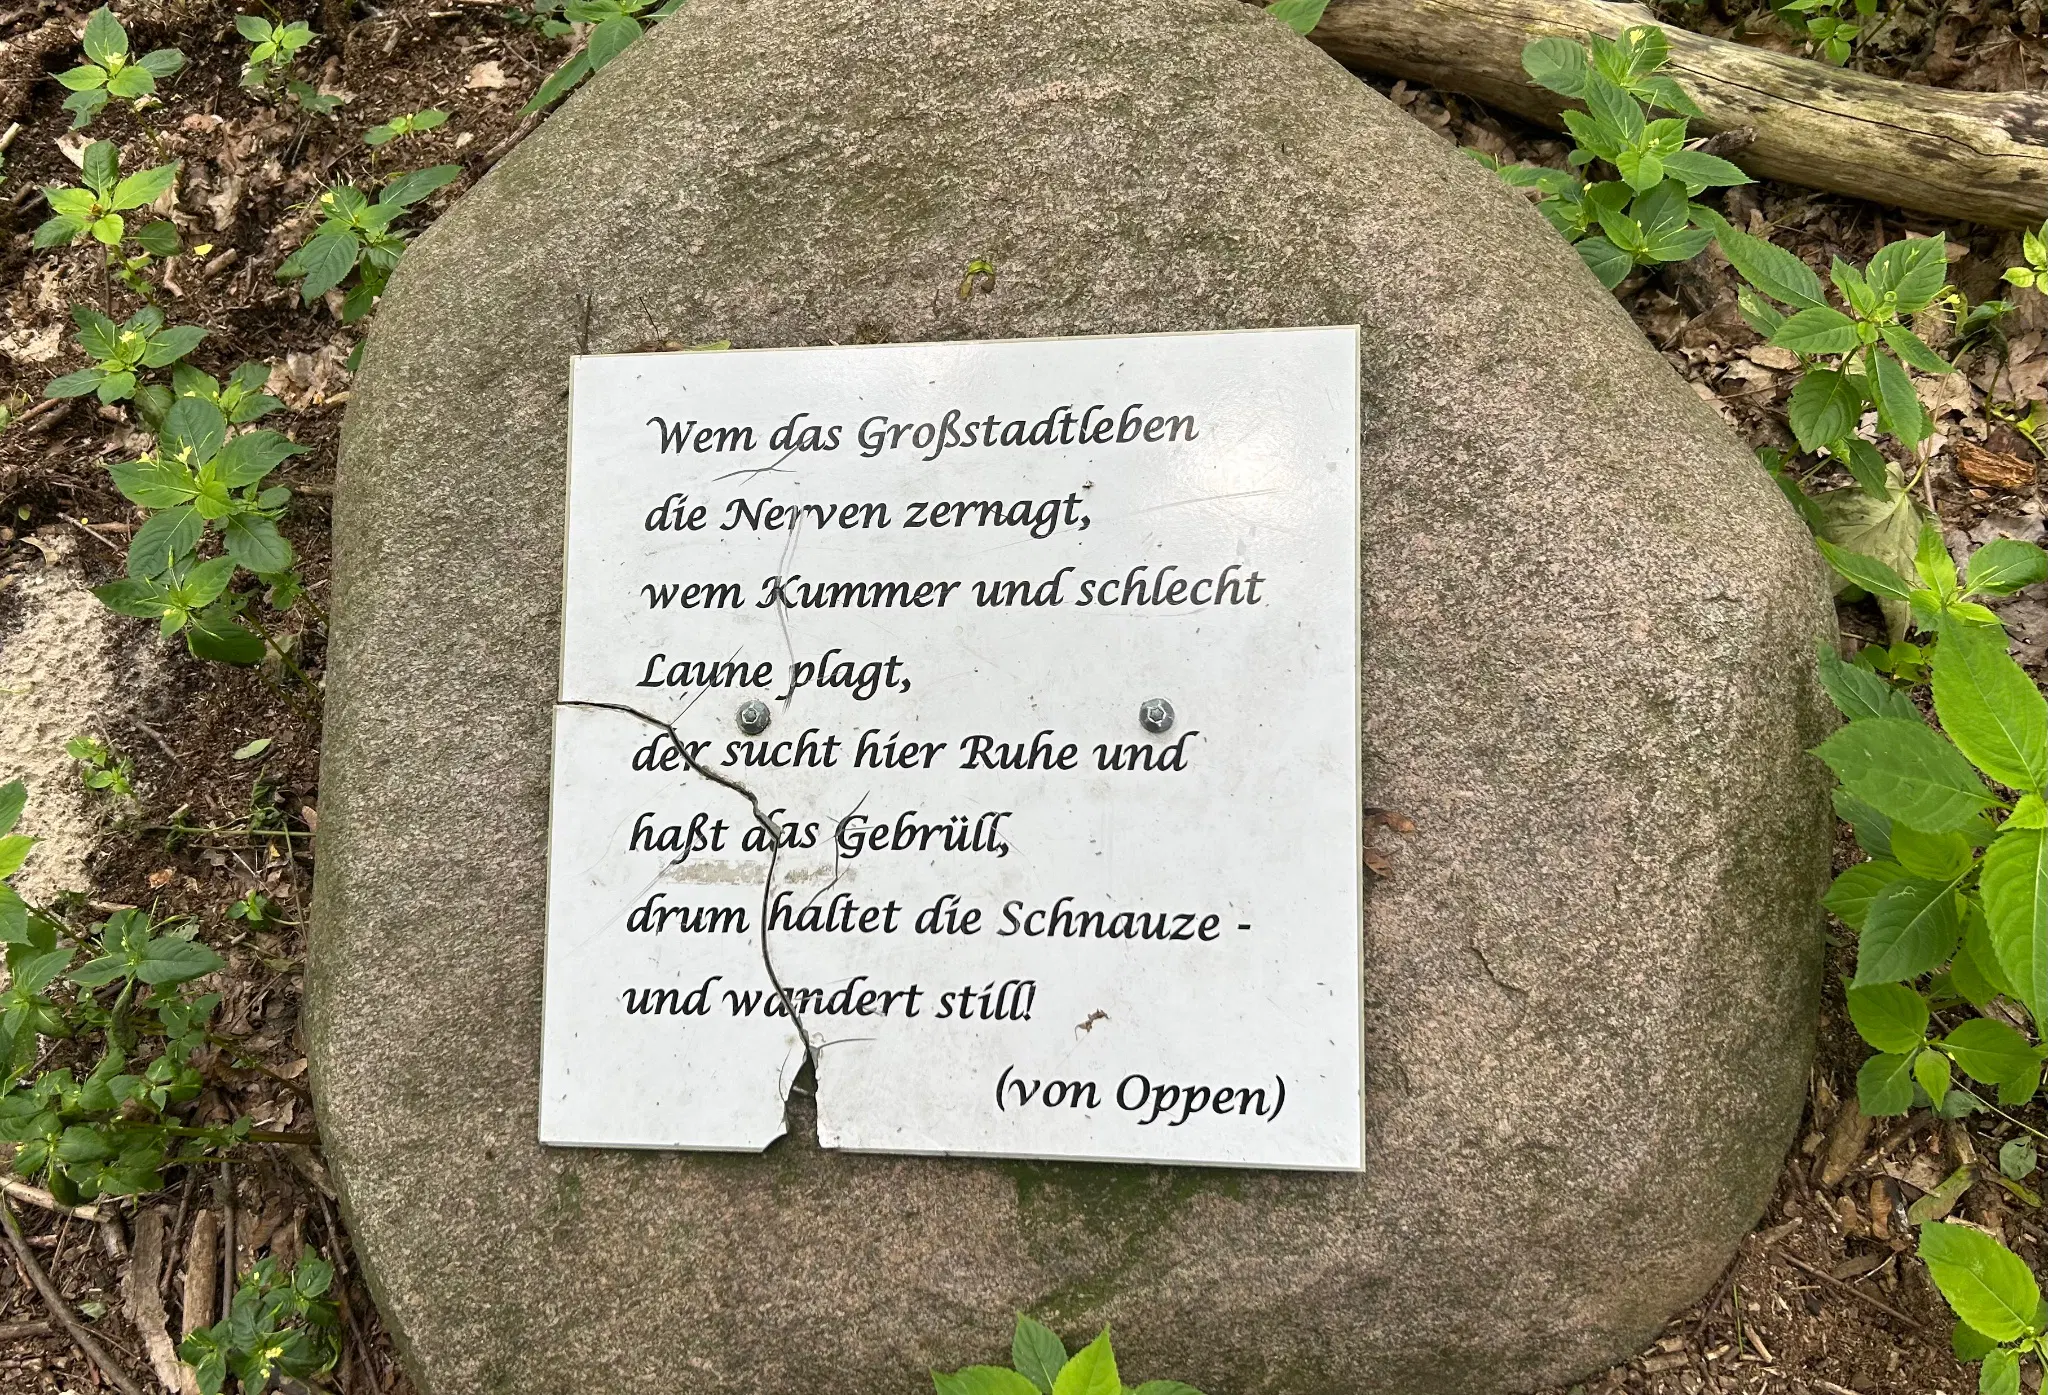 Wem das Großstadtleben
die Nerven zernagt,
wem Kummer und schlecht
Laune plagt,
der sucht hier Ruhe und
haßt das Gebrüll,
drum haltet die Schnauze -
und wandert still!
(von Oppen)